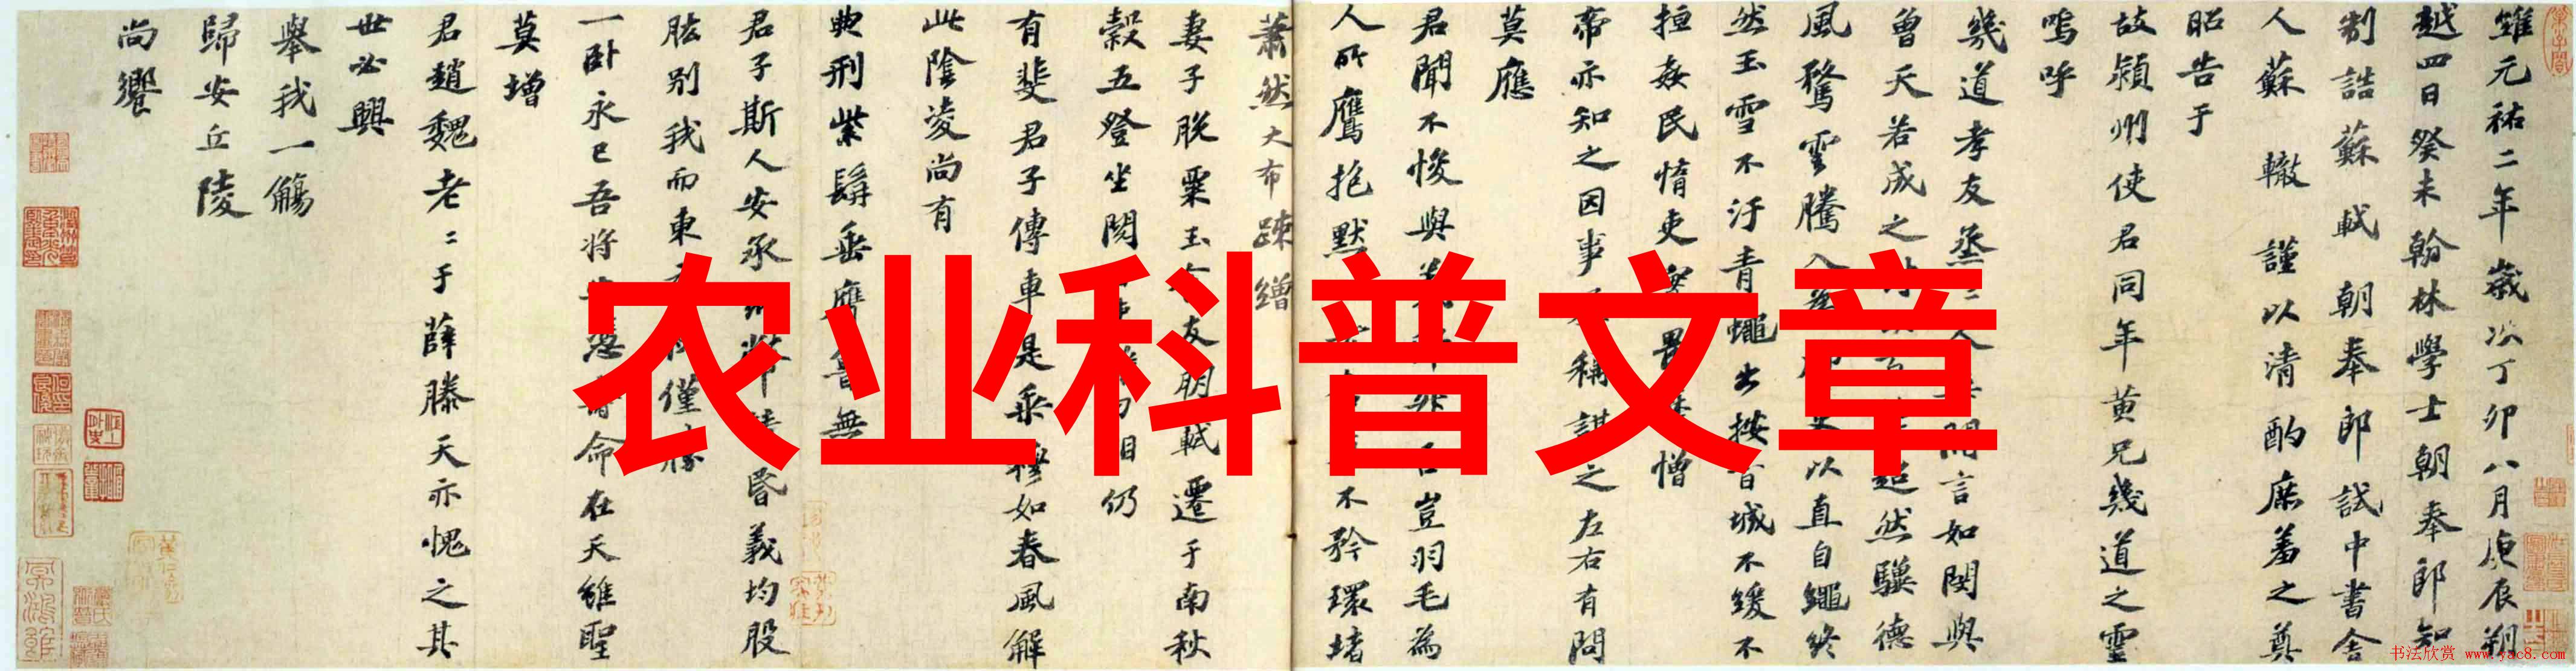 維元祐二年歲次丁卯八月庚辰朔
越四日癸未翰林學士朝奉郎知
制誥蘇軾朝奉郎試中書舍
人蘇轍謹以清酌庶羞之奠
昭告于
故潁州使君同年黃兄幾道之靈
嗚呼
幾道孝友烝二人間言如閔與
曾天若成之超然驥德
風騖雲騰入以直自繩終
然玉雪不汙青蠅出按百城不緩不
姦民惰吏畏憎
帝亦知之因事稱謀之左右有問
莫應
君聞不悛與豈羽毛為
人所鷹抱默不矜環堵
蕭然大布疎繒
妻子脫粟玉友朋軾遷于南秋
穀五登坐閱相仍
有斐君子傳車是乘穆如春風解
此陰凌尚有
典刑紫髯垂膺魯無
君子斯人安承幣昏義均股
肱別我而東僅勝
一臥永已吾將命在天雖聖
莫增
君趙魏老二于薛滕天亦愧之其
世必興
舉我一觴
歸安丘陵
尚饗
农业科普文章
书法欣赏 www.yac8.com